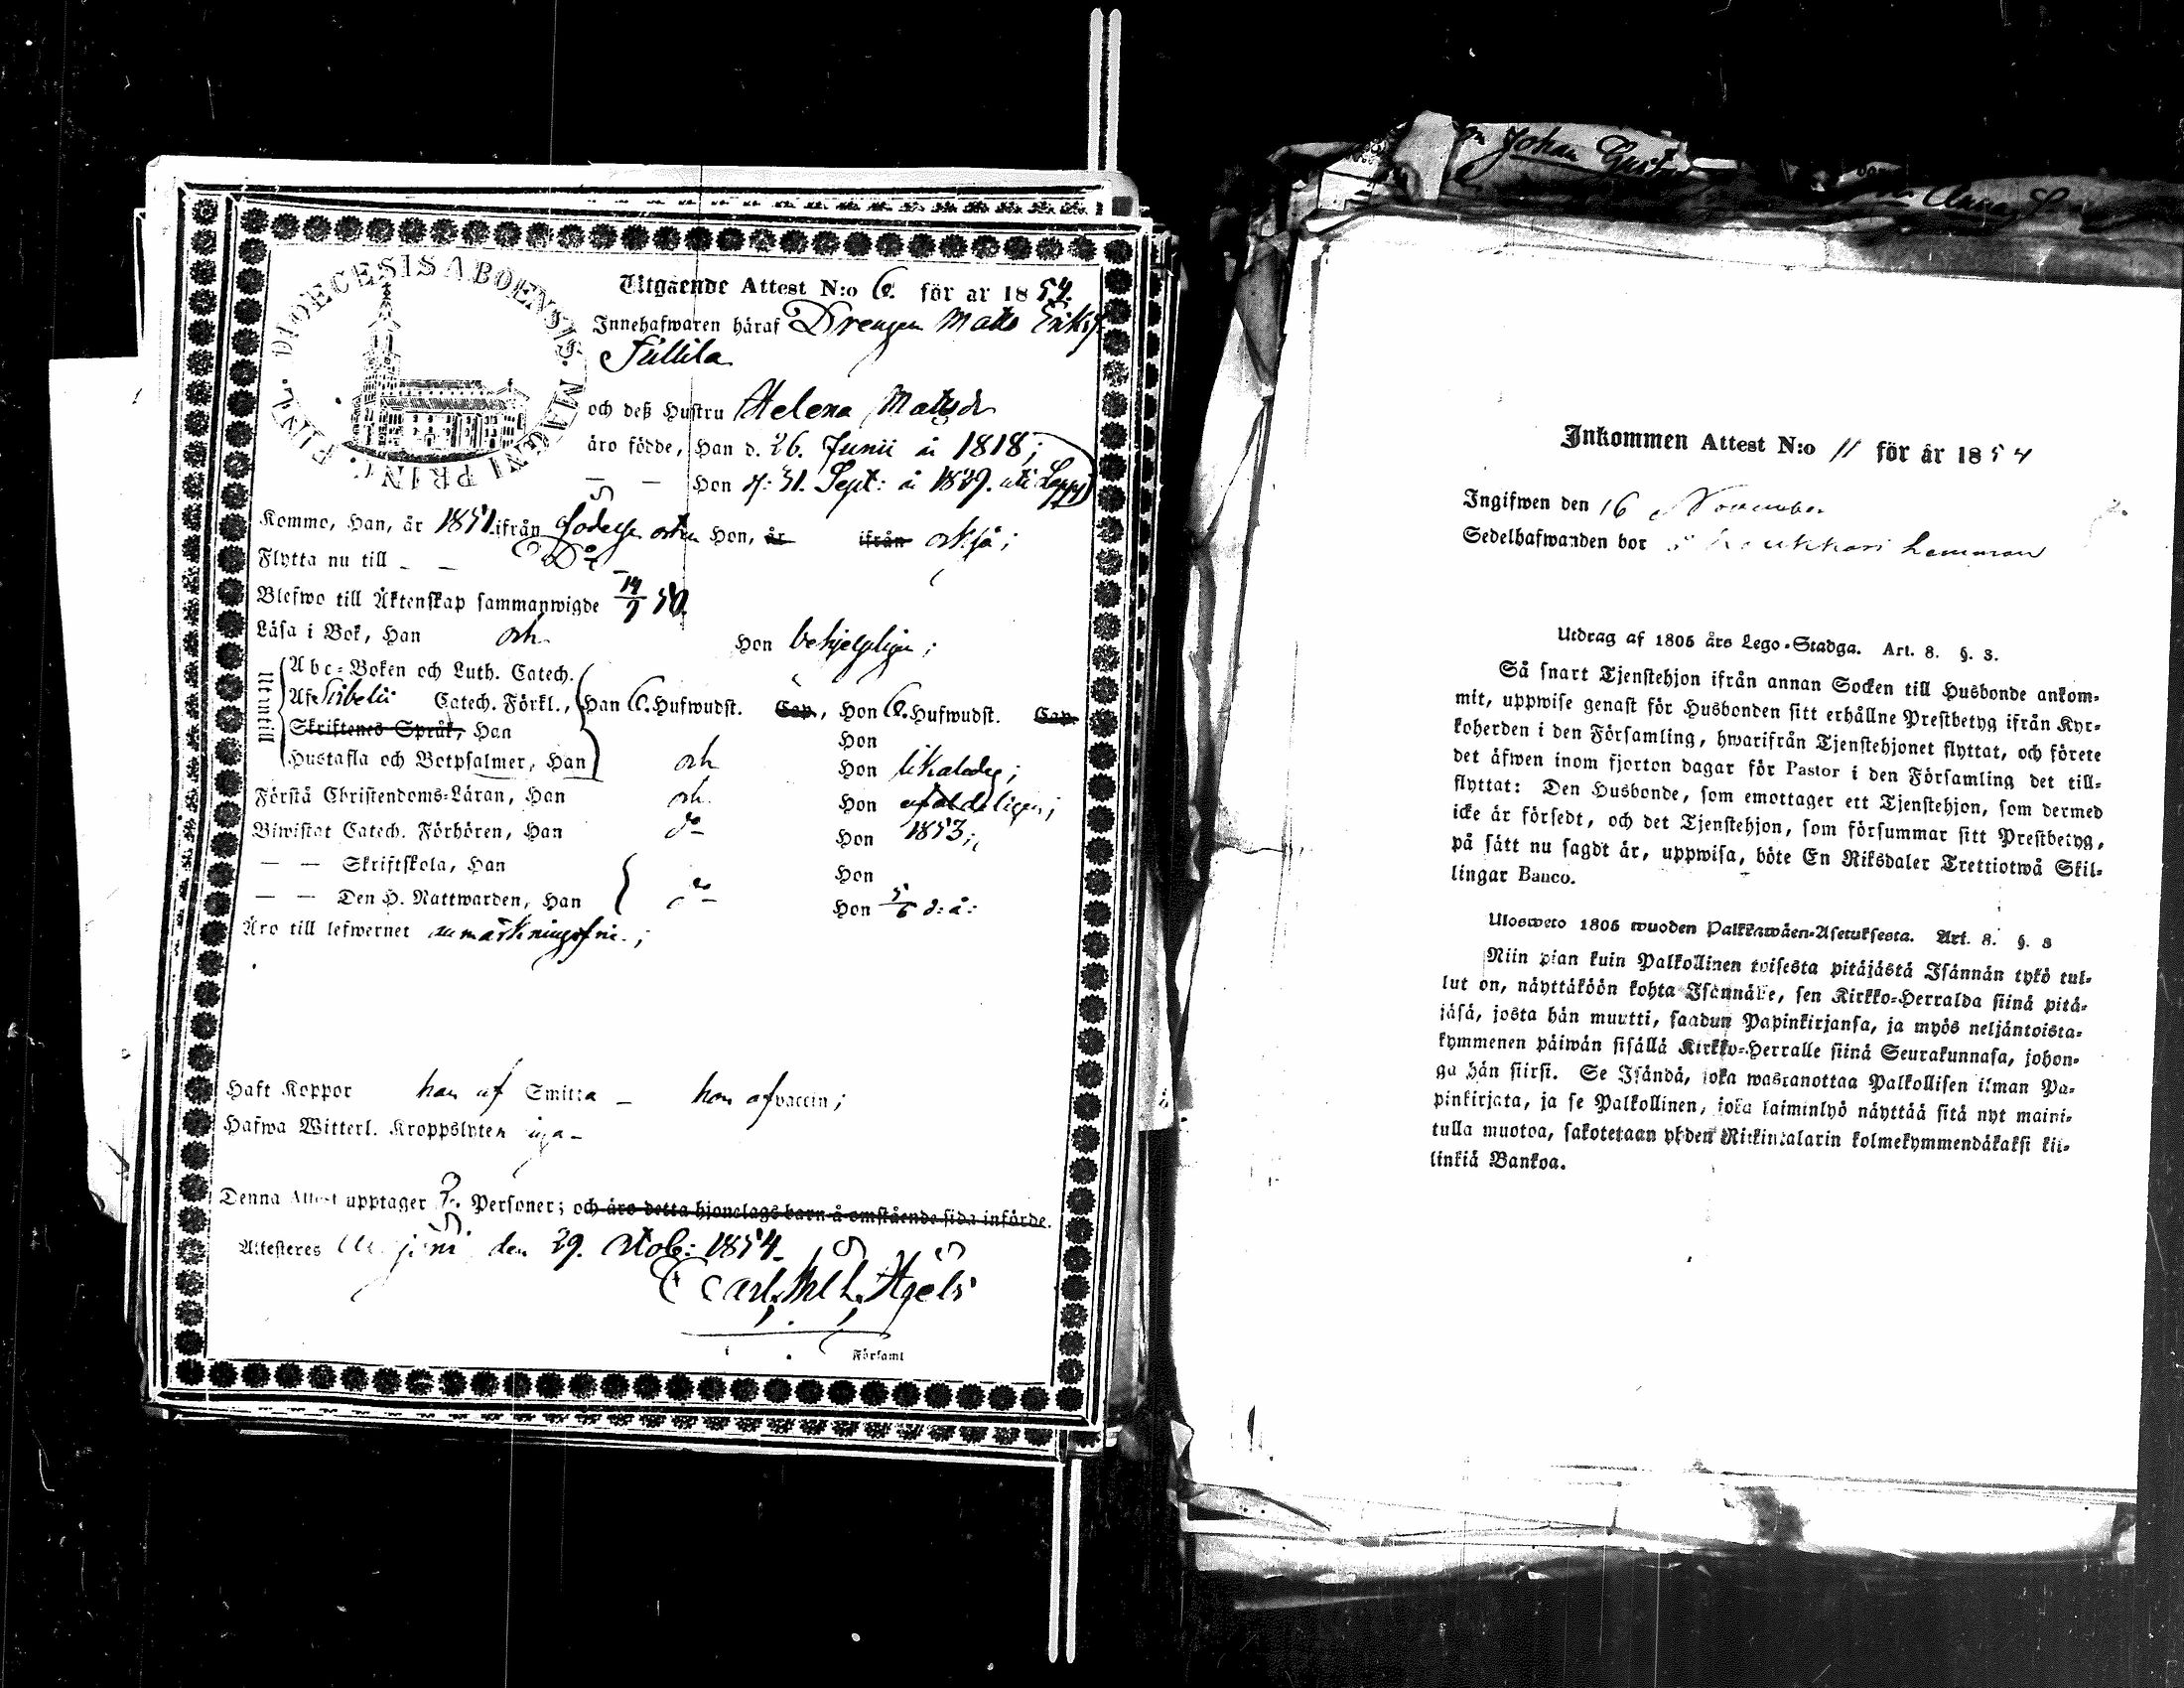 DIOECESIS ABOENSIS. MAGNI PRINC. FINL.
Utgående Attest N:o 6. för år 1854.
Innehafwaren häraf Drengen Matts Eriksf
och deß Hustru Helena Matsdr
äro födde, Han d. 26. Junii å 1818;
— — Hon d: 31. Sept: å 1829. uti Lappf
Komma, Han, år 1851. ifrån orten Hon, år ifrån också;
Flytta nu till _ _ Do
Blefwo till Äktenskap sammanwigde
Läsa i Bok, Han och Hon behjelpligen;
Utantill
Abc-Boken och Luth. Catech.
Af Sibelii Catech. Förkl., Han 6. Hufwudst. Cap., Hon 6. Hufwudst. Cap.
Skriftenes Språk, Han Hon
Hustafla och Botpsalmer, Han och Hon likaledes;
Förstå Christendoms-Läran, Han och Hon
Biwistat Catech. Förhören, Han do Hon 1853;
— — Skriftskola, Han Hon
— — Den H. Nattwarden, Han do Hon 5/6 d: å:
Äro till lefwernet anmärkningsfrie.;
Haft Koppor han af Smitta — hon af vaccin;
Hafwa Witterl. Kroppslyten inga —
Denna Attest upptager 2. Personer; och äro detta hjonelags barn å omstående sida införde.
Attesteres den 29. Octob: 1854.
Carl
Församl
Johan Gust
Anna
Inkommen Attest N:o 11 för år 1854
Ingifwen den 16 November
Sedelhafwanden bor i
Utdrag af 1805 års Lego-Stadga. Art. 8. §. 3.
Så snart Tjenstehjon ifrån annan Socken till Husbonde ankom-
mit, uppwise genast för Husbonden sitt erhållne Prestbetyg ifrån Kyr-
koherden i den Församling, hwarifrån Tjenstehjonet flyttat, och förete
det äfwen inom fjorton dagar för Pastor i den Församling det till-
flyttat: Den Husbonde, som emottager ett Tjenstehjon, som dermed
icke är försedt, och det Tjenstehjon, som försummar sitt Prestbetyg,
på sätt nu sagdt är, uppwisa, böte En Riksdaler Trettiotwå Skil-
lingar Banco.
Ulosweto 1805 wuoden Palkkawäen-Asetuksesta. Art. 8. §. 3
Niin pian kuin Palkollinen toisesta pitäjästä Isännän tykö tul-
lut on, näyttäköön kohta Isännälle, sen Kirkko-Herralda siinä pitä-
jäsä, josta hän muutti, saadun Papinkirjansa, ja myös neljäntoista-
kymmenen päiwän sisällä Kirkko-Herralle siinä Seurakunnasa, johon-
ga hän siirsi. Se Isändä, joka wastanottaa Palkollisen ilman Pa-
pinkirjata, ja se Palkollinen, joka laiminlyö näyttää sitä nyt maini-
tulla muotoa, sakotetaan yhden Riikintalarin kolmekymmendäkaksi kil-
linkiä Bankoa.